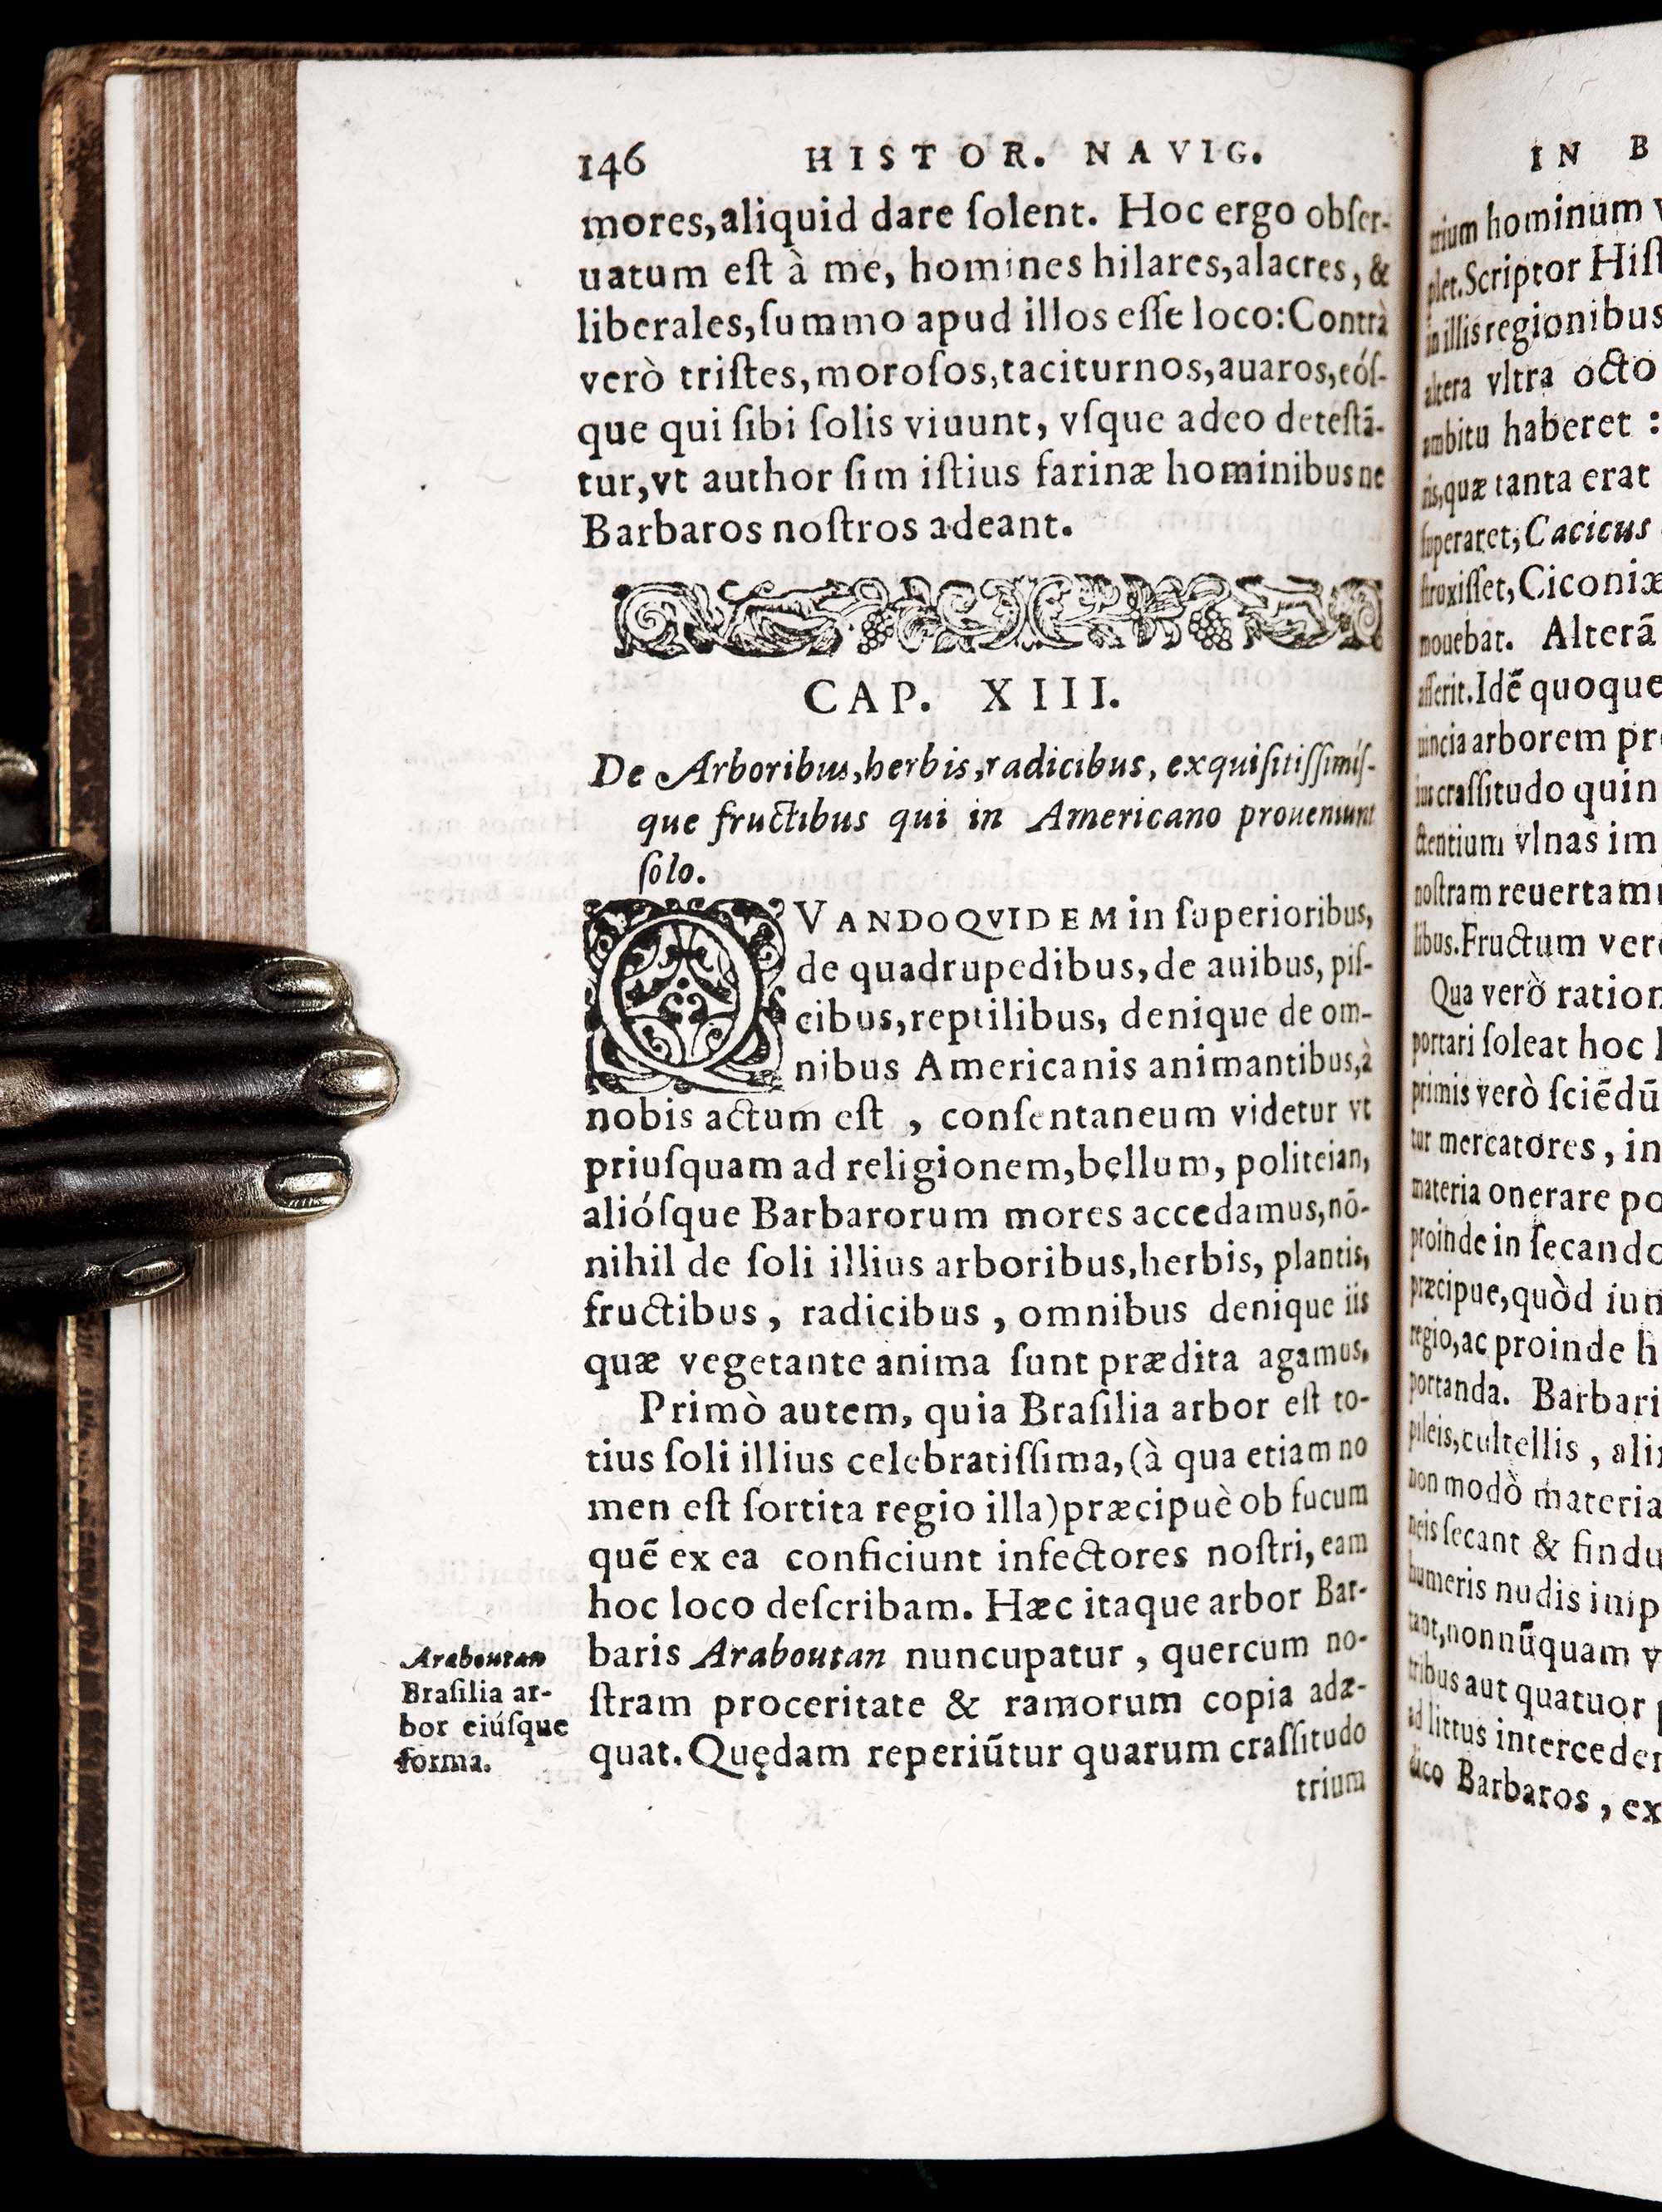 146 HISTOR. NAVIG.
mores, aliquid dare ſolent. Hoc ergo obſer-
uatum eſt à me, homines hilares, alacres, &
liberales, ſummo apud illos eſſe loco: Contrà
verò triſtes, moroſos, taciturnos, auaros, eóſ-
que qui ſibi ſolis viuunt, vſque adeo deteſtā-
tur, vt author ſim iſtius farinæ hominibus ne
Barbaros noſtros adeant.
CAP. XIII.
De Arboribus, herbis, radicibus, exquiſitiſſimíſ-
que fructibus qui in Americano proueniunt
ſolo.
QVANDOQVIDEM in ſuperioribus,
de quadrupedibus, de auibus, piſ-
cibus, reptilibus, denique de om-
nibus Americanis animantibus, à
nobis actum eſt , conſentaneum videtur vt
priuſquam ad religionem, bellum, politeian,
alióſque Barbarorum mores accedamus, nō-
nihil de ſoli illius arboribus, herbis, plantis,
fructibus , radicibus , omnibus denique iis
quæ vegetante anima ſunt prædita agamus.
Primò autem, quia Braſilia arbor eſt to-
tius ſoli illius celebratiſſima, (à qua etiam no
men eſt ſortita regio illa) præcipuè ob fucum
quē ex ea conficiunt infectores noſtri, eam
hoc loco deſcribam. Hæc itaque arbor Bar-
baris Araboutan nuncupatur , quercum no-
ſtram proceritate & ramorum copia adæ-
quat. Quędam reperiūtur quarum craſſitudo
trium
Araboutan
Braſilia ar-
bor eiúſque
forma.
IN B
trium hominum
plet. Scriptor Hiſt
in illis regionibus
altera vltra octo
ambitu haberet :
ris, quæ tanta erat
ſuperaret, Cacicus
ſtruxiſſet, Ciconiæ
mouebat. Alterā
aſſerit. Idē quoque
uincia arborem pr
ius craſſitudo quin
ctentium vlnas im
noſtram reuertam
libus. Fructum ver
Qua verò ration
portari ſoleat hoc
primis verò ſciēdū
tur mercatores , in
materia onerare po
proinde in ſecando
præcipue, quòd iu
regio, ac proinde h
portanda. Barbari
pileis, cultellis , ali
non modò materia
neis ſecant & findu
humeris nudis imp
tant, nonnūquam v
tribus aut quatuor
ad littus interceder
dico Barbaros , ex